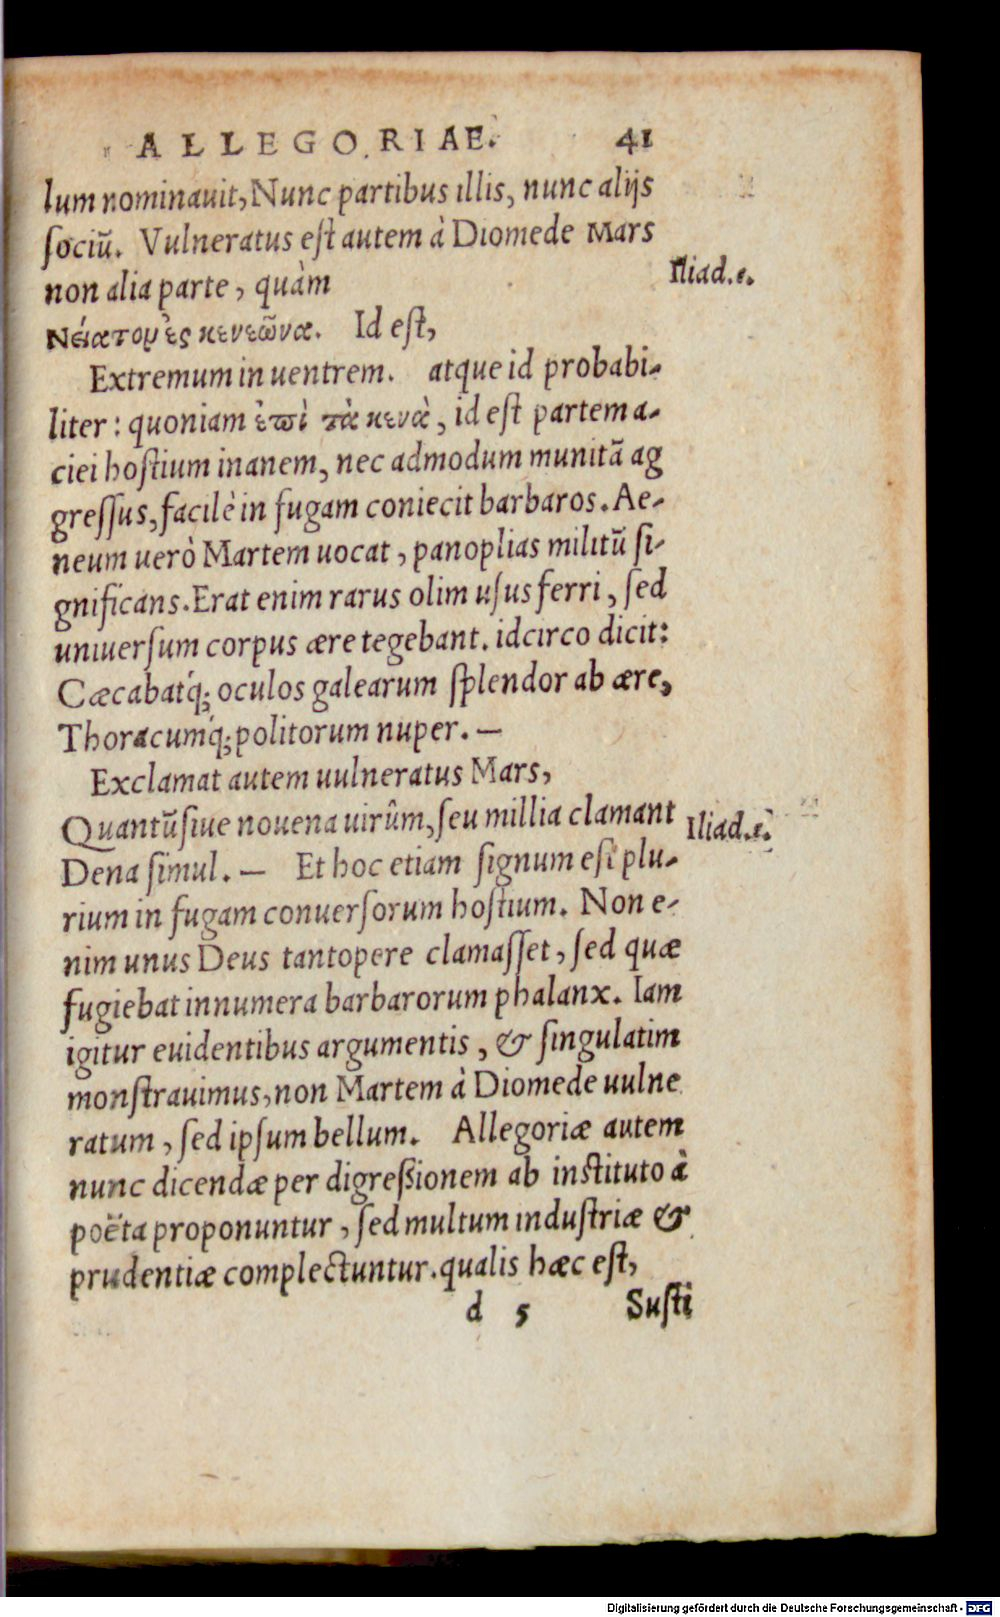 ALLEGORIAE. 41
lum nominauit, Nunc partibus illis, nunc alijs
ſociũ. Vulneratus eſt autem à Diomede Mars
non alia parte, quàm
Iliad.ε.
Νείατομ ἐς κενεῶνα. Id eſt,
Extremum in uentrem. atque id probabi-
liter: quoniam ἐπὶ τὰ κενὰ, id eſt partem a-
ciei hoſtium inanem, nec admodum munitã ag
greſſus, facilè in fugam coniecit barbaros. Ae-
neum uerò Martem uocat, panoplias militũ ſi-
gnificans. Erat enim rarus olim uſus ferri, ſed
uniuerſum corpus ære tegebant. idcirco dicit:
Cæcabatq́; oculos galearum ſplendor ab ære,
Thoracumq́; politorum nuper. —
Exclamat autem uulneratus Mars,
Quantũ ſiue nouena uirûm, ſeu millia clamant
Iliad.ε.
Dena ſimul. — Et hoc etiam ſignum eſt plu-
rium in fugam conuerſorum hoſtium. Non e-
nim unus Deus tantopere clamaſſet, ſed quæ
fugiebat innumera barbarorum phalanx. Iam
igitur euidentibus argumentis, & ſingulatim
monſtrauimus, non Martem à Diomede uulne
ratum, ſed ipſum bellum. Allegoriæ autem
nunc dicendæ per digreßionem ab inſtituto à
poëta proponuntur, ſed multum induſtriæ &
prudentiæ complectuntur. qualis hæc eſt,
d 5 Suſti
Digitalisierung gefördert durch die Deutsche Forschungsgemeinschaft - DFG